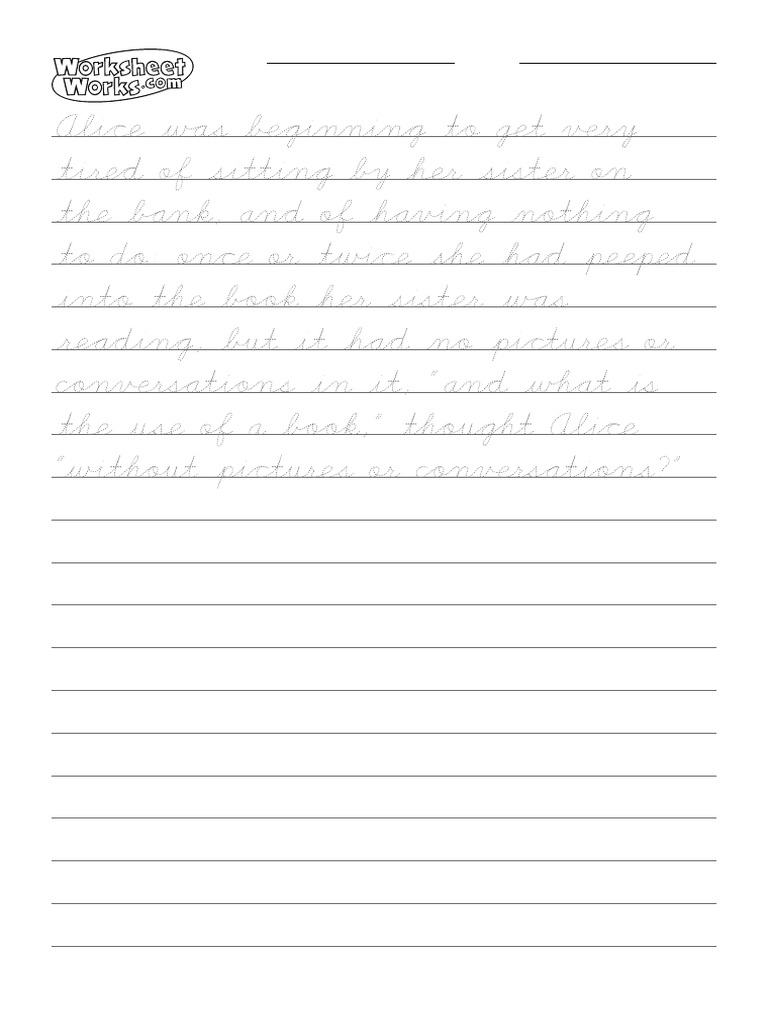 Worksheet
Works.com
Alice was beginning to get very
tired of sitting by her sister on
the bank, and of having nothing
to do: once or twice she had peeped
into the book her sister was
reading, but it had no pictures or
conversations in it, "and what is
the use of a book," thought Alice
"without pictures or conversations?"